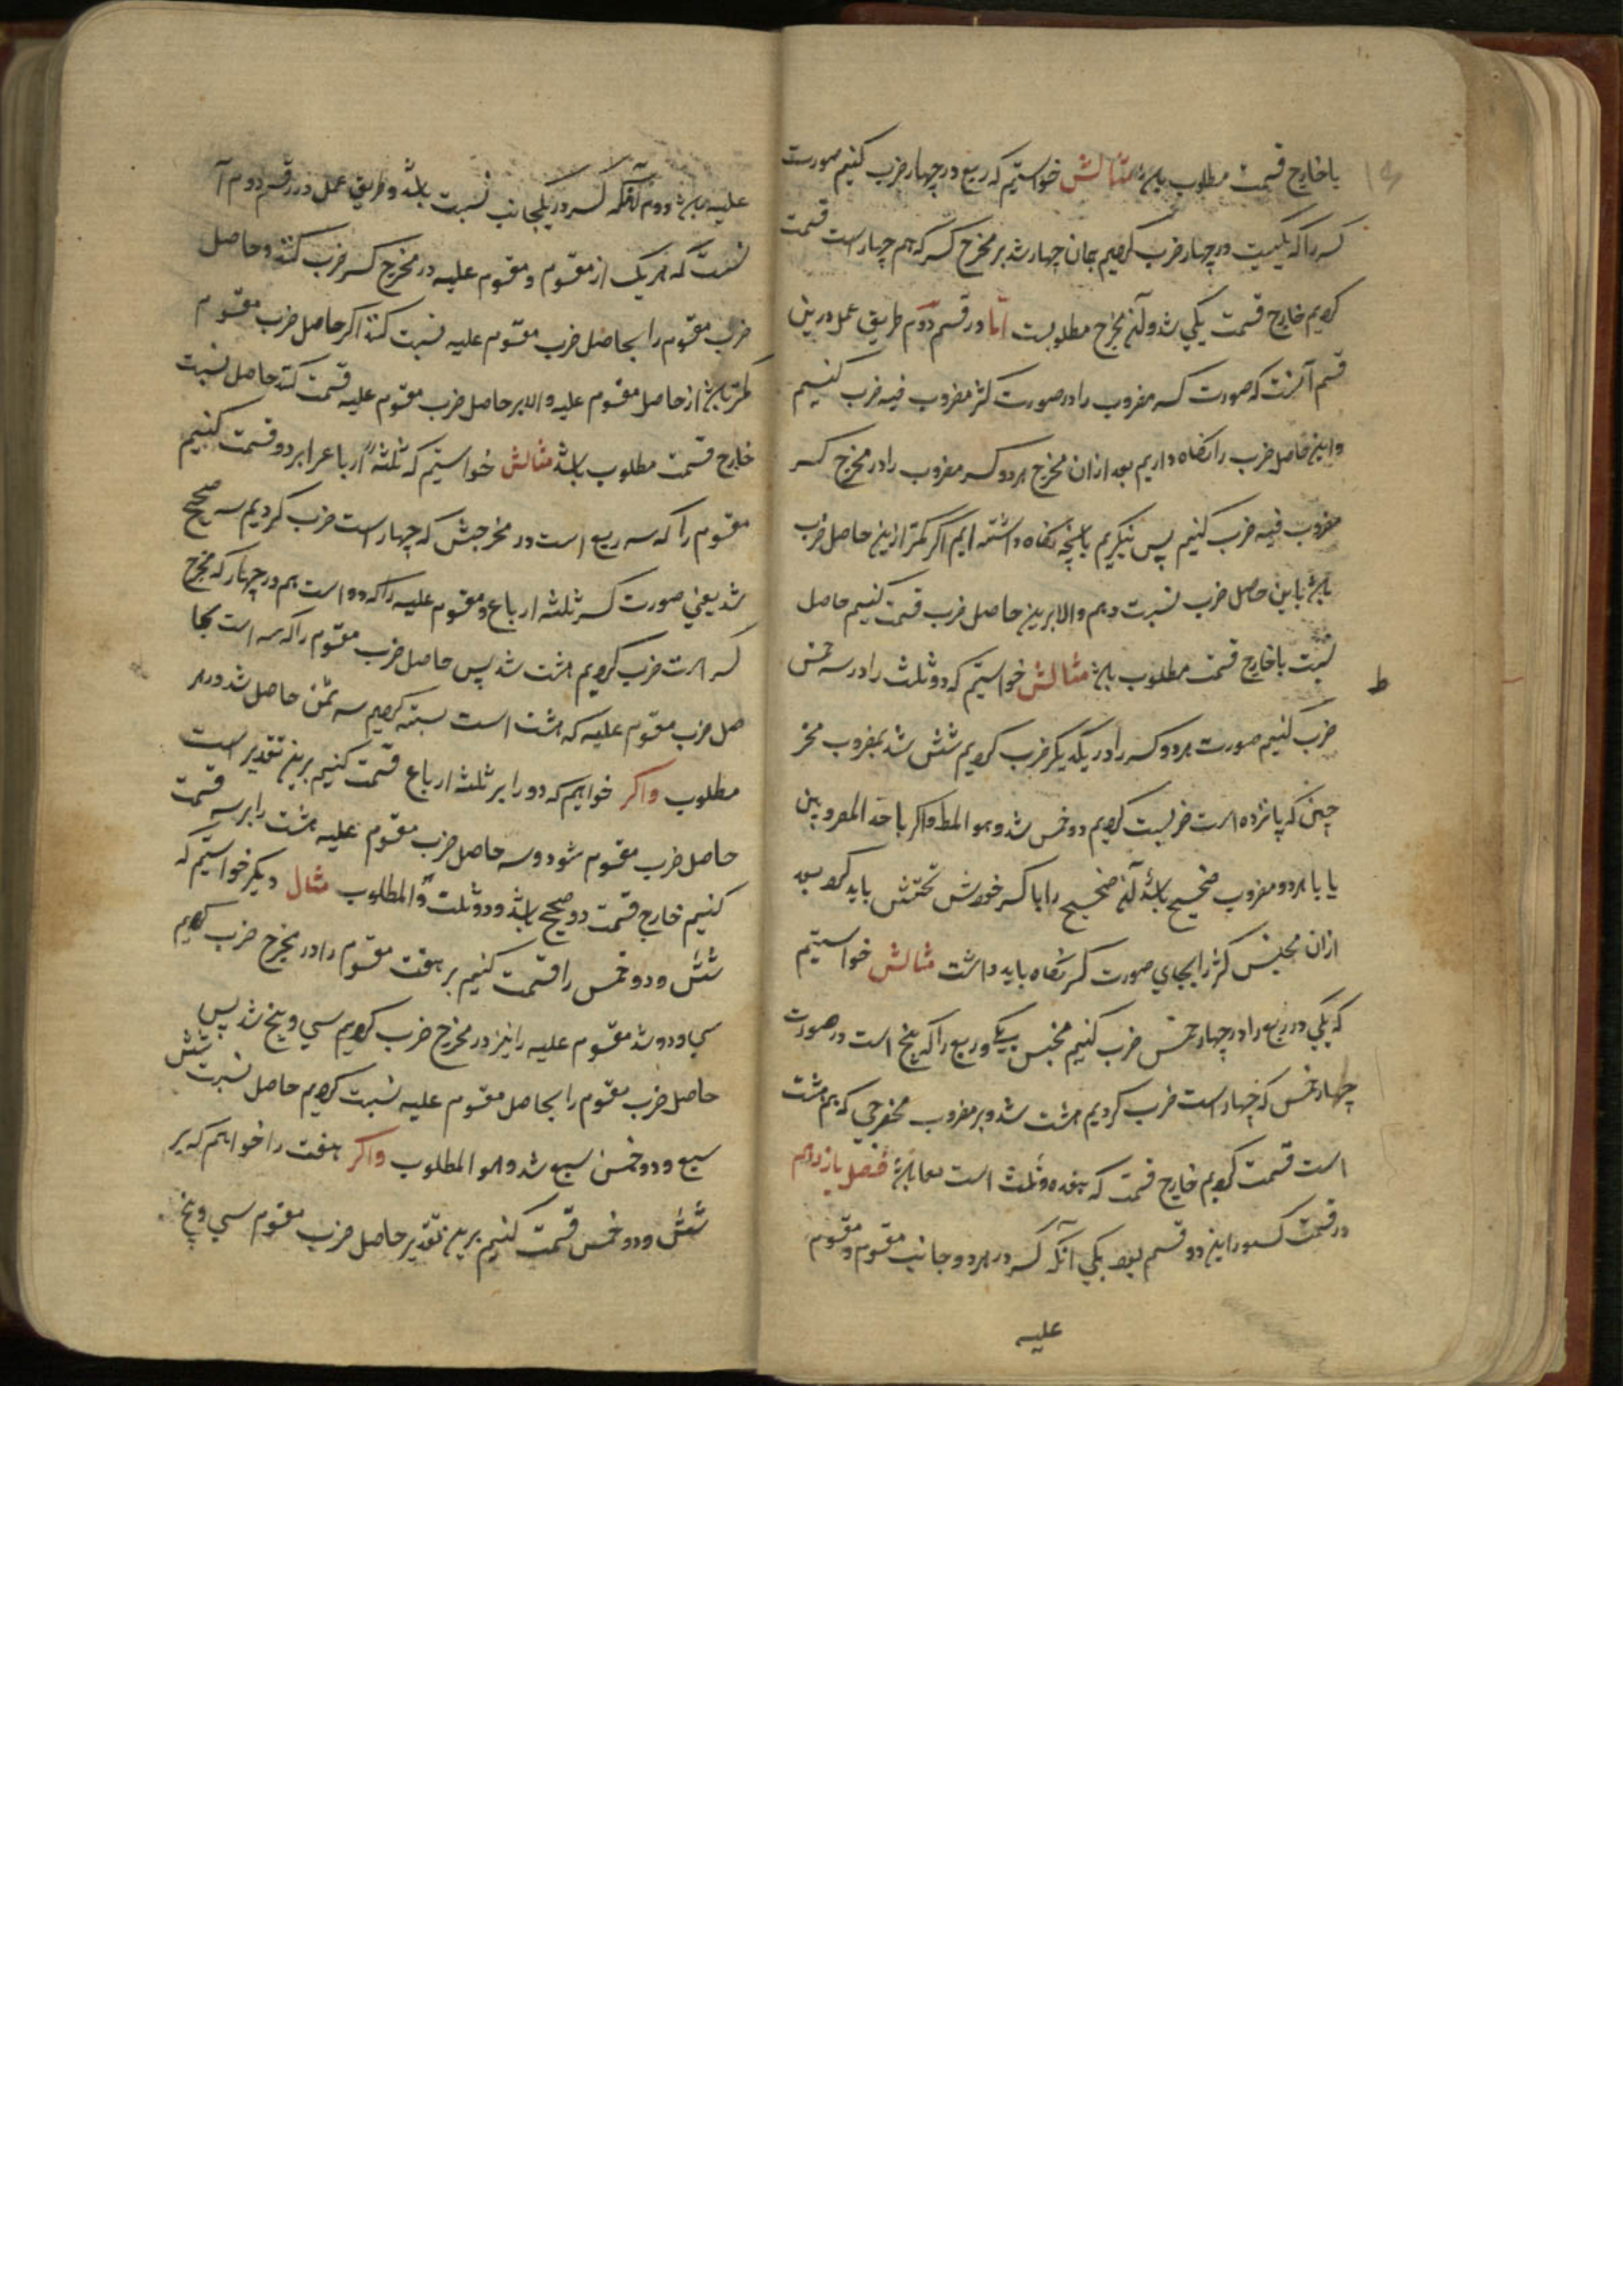 یا خارج قسمت مطلوب باشد مثالش خواستیم که ربع در چهار ضرب کنیم صورت
کسر را که یکیست در چهار ضرب کردیم همان چهار شد بر مخرج کسر که هم چهار است قسمت
کردیم خارج قسمت یکی شد و آن مطلوبست اما در قسم دوم طریق عمل درین
قسم آنست که صورت کسر مضروب را در صورت کسر مضروب فیه ضرب کنیم
و این حاصل ضرب را نگاه داریم بعد ازان مخرج هر دو کسر مضروب را در مخرج کسر
مضروب فیه ضرب کنیم پس بنگریم بانچه نگاه داشته ایم اگر کمتر ازین حاصل ضرب
باشد باین حاصل ضرب نسبت دهیم و الا برین حاصل ضرب قسمت کنیم حاصل
نسبت یا خارج قسمت مطلوب باشد مثالش خواستیم که دو ثلث را در سه خمس
ضرب کنیم صورت هر دو کسر را در یکدیگر ضرب کردیم شش شد بمضروب مخر
جین که پانزده است نسبت کردیم دو خمس شد و هو المط و اگر با احد المضروبین
یا با هر دو مضروب صحیح باشد آن صحیح را با کسر خودش تجنیس باید کرد بعد
ازان مجنس کسر را بجای صورت کسر نگاه باید داشت مثالش خواستیم
که یکی و ربع را در چهار خمس ضرب کنیم مجنس یک و ربع را که پنج است در صورت
چهار خمس که چهار است ضرب کردیم شد و بر مضروب مخرجی که
است قسمت کردیم خارج قسمت که ثلث است باشد فصل یازدهم
در قسمت کسور این دو قسم بود یکی آنکه کسر در هر دو جانب مقسوم و مقسوم
علیه
علیه باشد دوم آنکه کسر در یکجانب نسبت باشد و طریق عمل در قسم دوم آ
نست که هر یک از مقسوم و مقسوم علیه در مخرج کسر ضرب کنند و حاصل
ضرب مقسوم را بحاصل ضرب مقسوم علیه نسبت کنند اگر حاصل ضرب مقسوم
کمتر باشد از حاصل مقسوم علیه و الا بر حاصل ضرب مقسوم علیه قسمت کنند حاصل نسبت
خارج قسمت مطلوب باشد مثالش خواستیم که ثلثه ارباع را بر دو قسمت کنیم
مقسوم را که سه ربع است در مخرجش که چهار است ضرب کردیم سه صحیح
شد یعنی صورت کسر ثلثه ارباع و مقسوم علیه را که دو است هم در چهار که مخرج
کسر است ضرب کردیم هشت شد پس حاصل ضرب مقسوم را که سه است بحا
صل ضرب مقسوم علیه که هشت است نسبت کردیم سه ثمن حاصل شد و هو
مطلوب و اگر خواهیم که دو را بر ثلثه ارباع قسمت کنیم برین تقدیر هشت
حاصل ضرب مقسوم شود و سه حاصل ضرب مقسوم علیه هشت را بر سه قسمت
کنیم خارج قسمت دو صحیح باشد و دو ثلث و المطلوب مثال دیگر خواستیم که
شش و دو خمس را قسمت کنیم بر هفت مقسوم را در مخرج ضرب کردیم
سی و دو شد مقسوم علیه را نیز در مخرج ضرب کردیم سی و پنج شد پس
حاصل ضرب مقسوم را بحاصل مقسوم علیه نسبت کردیم حاصل نسبت شش
سبع و دو خمس سبع شد و هو المطلوب و اگر هفت را خواهیم که بر
شش و دو خمس قسمت کنیم برین تقدیر حاصل ضرب مقسوم سی و پنج